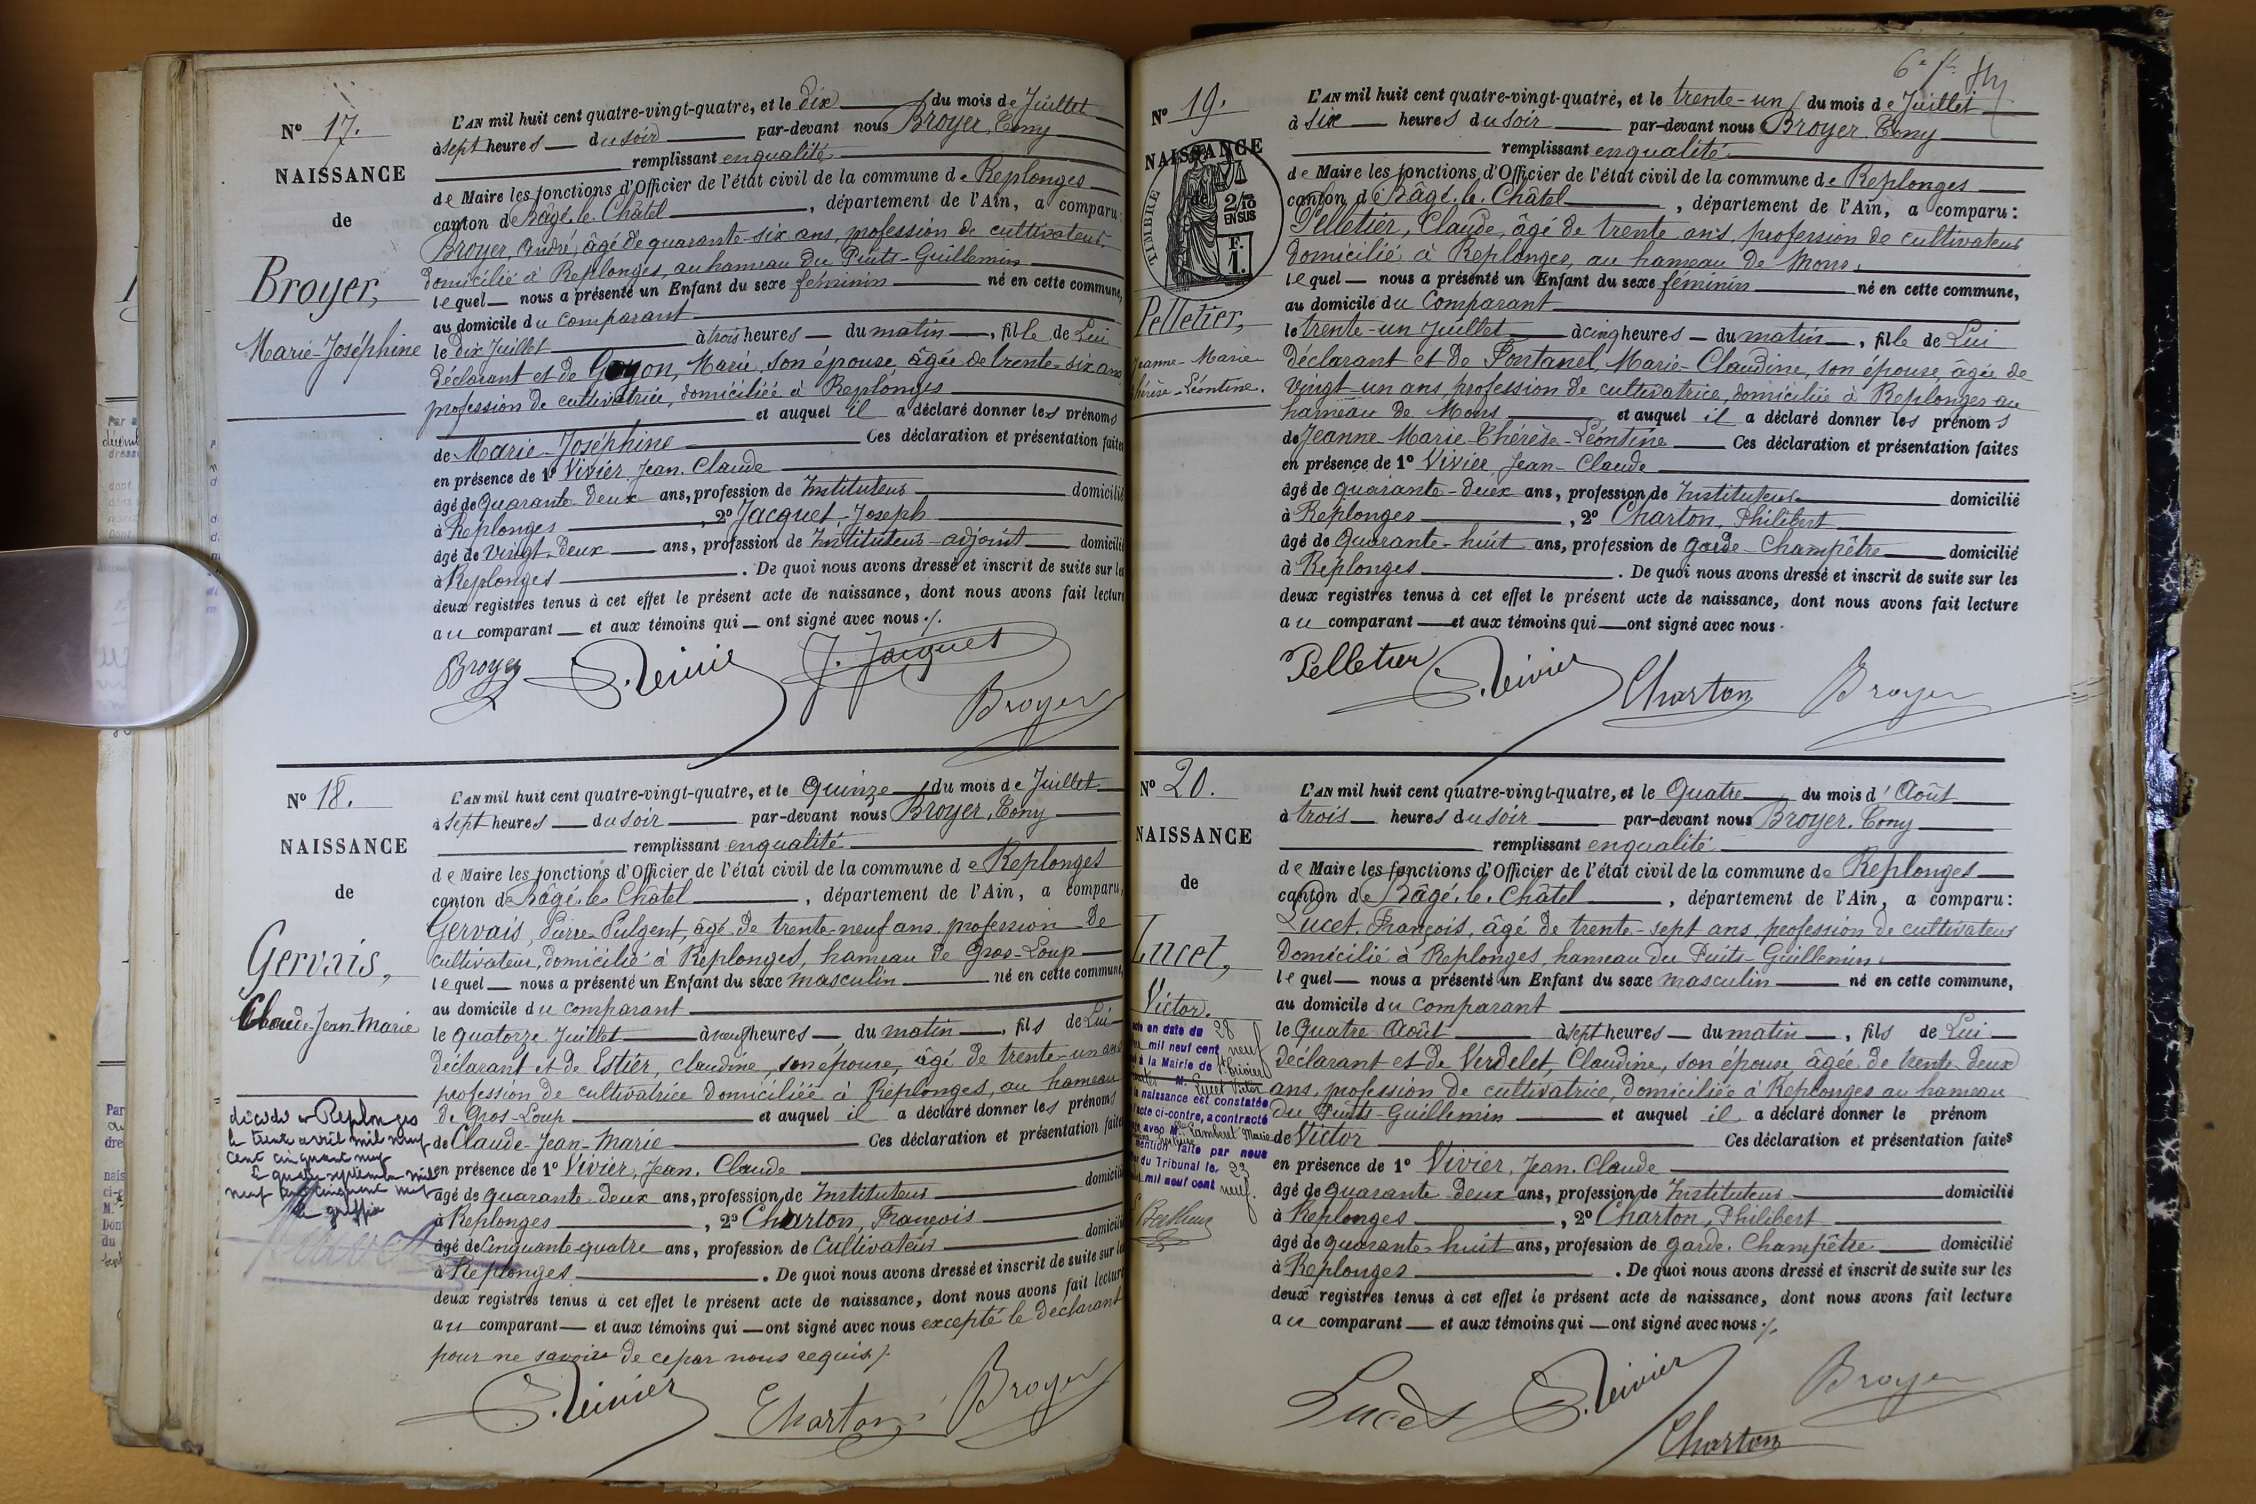 N° 17.
NAISSANCE
de
Broyer,
Marie-Joséphine
L'AN mil huit cent quatre-vingt-quatre, et le dix du mois de Juillet
à sept heures du soir par-devant nous Broyer, Tony
remplissant en qualité
de Maire les fonctions d'Officier de l'état civil de la commune de Replonges
canton de Bâgé-le-Châtel, département de l'Ain, a comparu:
Broyer, André, âgé de quarante-six ans, profession de cultivateur
domicilié à Replonges, au hameau du Puits-Guillemin
lequel nous a présenté un Enfant du sexe féminin né en cette commune,
au domicile du comparant
le dix Juillet à trois heures du matin, fille de Lui
déclarant et de Goyon, Marie, son épouse, âgée de trente-six ans
profession de cultivatrice, domiciliée à Replonges
et auquel il a déclaré donner les prénoms
de Marie-Joséphine Ces déclaration et présentation faites
en présence de 1° Vivier, Jean-Claude
âgé de Quarante-deux ans, profession de Instituteur domicilié
à Replonges, 2° Jacquet-Joseph
âgé de vingt-deux ans, profession de Instituteur-adjoint domicilié
à Replonges. De quoi nous avons dressé et inscrit de suite sur les
deux registres tenus à cet effet le présent acte de naissance, dont nous avons fait lecture
au comparant et aux témoins qui ont signé avec nous ./.
Broyer Vivier J. Jacquet
Broyer
N° 18.
NAISSANCE
de
Gervais,
Claude-Jean-Marie
décédé à Replonges
le trente avril mil neuf
cent cinquante neuf
Le quatre septembre mil
neuf cent cinquante neuf
Le greffier
L'AN mil huit cent quatre-vingt-quatre, et le Quinze du mois de Juillet
à sept heures du soir par-devant nous Broyer, Tony
remplissant en qualité
de Maire les fonctions d'Officier de l'état civil de la commune de Replonges
canton de Bâgé-le-Châtel, département de l'Ain, a comparu,
Gervais, Pierre-Fulgent, âgé de trente-neuf ans profession de
cultivateur, domicilié à Replonges, hameau de Gros-Loup
lequel nous a présenté un Enfant du sexe masculin né en cette commune,
au domicile du comparant
le quatorze Juillet à neuf heures du matin, fils de Lui
déclarant et de Estier, claudine, son épouse, âgé de trente-un ans
profession de cultivatrice domiciliée à Replonges, au hameau
de Gros-Loup et auquel il a déclaré donner les prénoms
de Claude-Jean-Marie Ces déclaration et présentation faites
en présence de 1° Vivier, Jean-Claude
âgé de quarante-deux ans, profession de Instituteur domicilié
à Replonges, 2° Charton, François
âgé de Cinquante-quatre ans, profession de Cultivateur domicilié
à Replonges. De quoi nous avons dressé et inscrit de suite sur les
deux registres tenus à cet effet le présent acte de naissance, dont nous avons fait lecture
au comparant et aux témoins qui ont signé avec nous excepté le déclarant
pour ne savoir de ce par nous requis ./.
Vivier Charton Broyer
6e ft.
N° 19.
NAISSANCE
de
TIMBRE
2/10
EN SUS
F.
1.
Pelletier,
Jeanne-Marie
Thérèse-Léontine.
L'AN mil huit cent quatre-vingt-quatre, et le trente-un du mois de Juillet
à six heures du soir par-devant nous Broyer, Tony
remplissant en qualité
de Maire les fonctions d'Officier de l'état civil de la commune de Replonges
canton de Bâgé-le-Châtel, département de l'Ain, a comparu:
Pelletier, Claude, âgé de trente ans, profession de cultivateur
domicilié à Replonges, au hameau de Mons,
lequel nous a présenté un Enfant du sexe féminin né en cette commune,
au domicile du Comparant
le trente-un Juillet à cinq heures du matin, fille de Lui
déclarant et de Fontanel, Marie-Claudine, son épouse, âgée de
vingt-un ans, profession de cultivatrice, domiciliée à Replonges au
hameau de Mons et auquel il a déclaré donner les prénoms
de Jeanne-Marie-Thérèse-Léontine Ces déclaration et présentation faites
en présence de 1° Vivier, Jean-Claude
âgé de quarante-deux ans, profession de Instituteur domicilié
à Replonges, 2° Charton, Philibert
âgé de Quarante-huit ans, profession de garde-champêtre domicilié
à Replonges. De quoi nous avons dressé et inscrit de suite sur les
deux registres tenus à cet effet le présent acte de naissance, dont nous avons fait lecture
au comparant et aux témoins qui ont signé avec nous.
Pelletier Vivier Charton Broyer
N° 20.
NAISSANCE
de
Lucet,
Victor.
en date du 28
mil neuf cent neuf
à la Mairie de St Trivier
M. Lucet Victor
naissance est constatée
acte ci-contre, a contracté
avec Mlle Lambert Marie
mention faite par nous
du Tribunal le 23
mil neuf cent neuf.
L'AN mil huit cent quatre-vingt-quatre, et le Quatre du mois d'Août
à trois heures du soir par-devant nous Broyer, Tony
remplissant en qualité
de Maire les fonctions d'Officier de l'état civil de la commune de Replonges
canton de Bâgé-le-Châtel, département de l'Ain, a comparu:
Lucet, François, âgé de trente-sept ans, profession de cultivateur
domicilié à Replonges, hameau du Puits-Guillemin,
lequel nous a présenté un Enfant du sexe masculin né en cette commune,
au domicile du comparant
le Quatre Août à sept heures du matin, fils de Lui
déclarant et de Verdelet, Claudine, son épouse, âgée de trente-deux
ans, profession de cultivatrice, domiciliée à Replonges au hameau
du Puits-Guillemin et auquel il a déclaré donner le prénom
de Victor Ces déclaration et présentation faites
en présence de 1° Vivier, Jean-Claude
âgé de quarante-deux ans, profession de Instituteur domicilié
à Replonges, 2° Charton, Philibert
âgé de quarante-huit ans, profession de garde-Champêtre domicilié
à Replonges. De quoi nous avons dressé et inscrit de suite sur les
deux registres tenus à cet effet le présent acte de naissance, dont nous avons fait lecture
au comparant et aux témoins qui ont signé avec nous ./.
Lucet Vivier Broyer
Charton